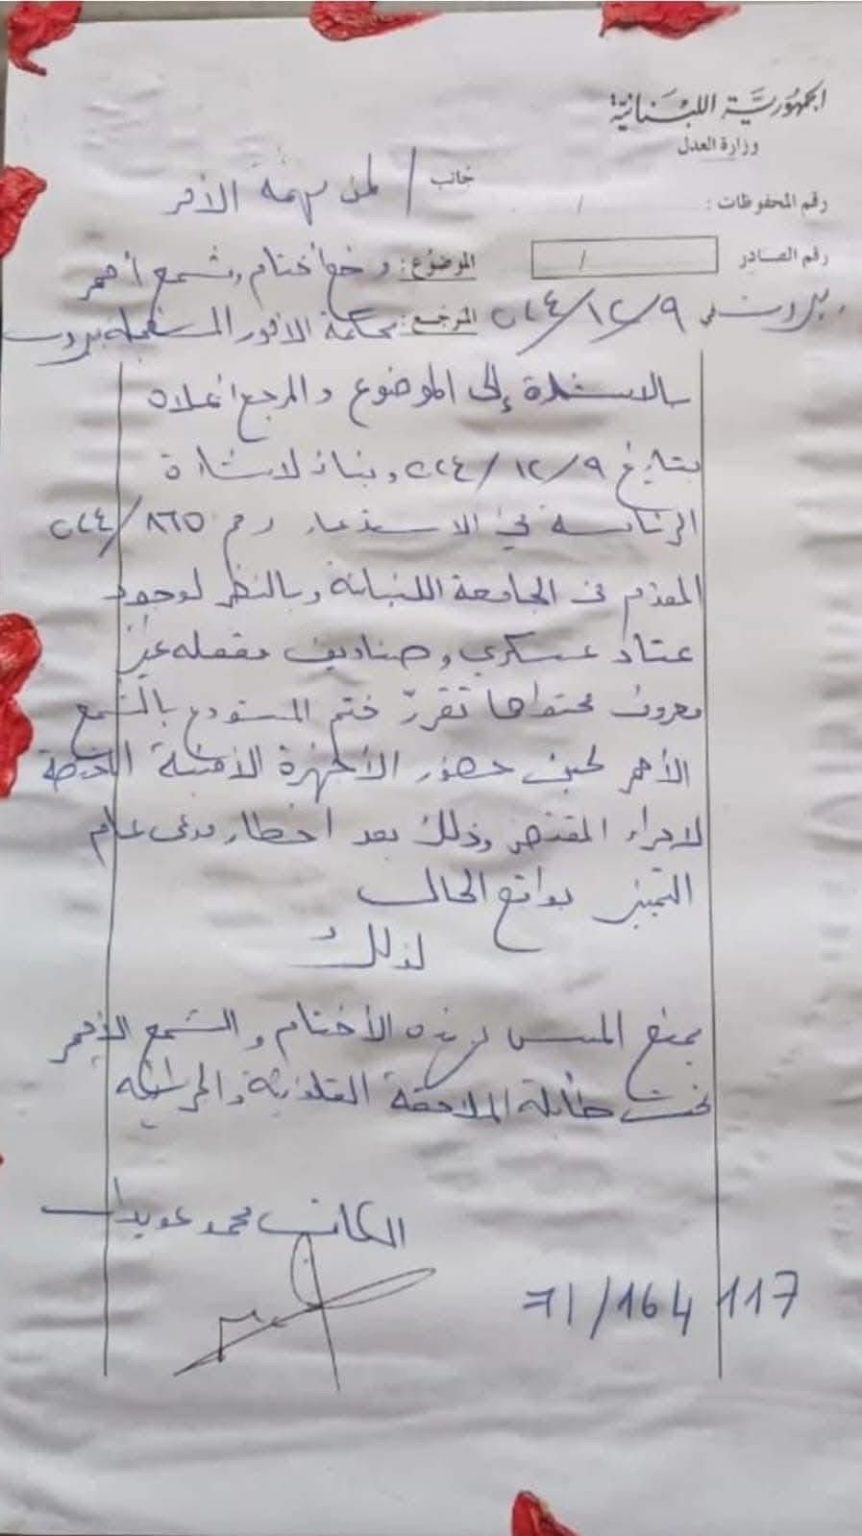 الجمهورية اللبنانية
وزارة العدل
جانب / لمن يهمه الأمر
رقم المحفوظات : /
رقم الصادر /
الموضوع : وضع أختام وشمع أحمر
بيروت في ٩/١٢/٢٠٢٤
المرجع : محكمة الأمور المستعجلة بيروت
بالاستناد إلى الموضوع والمرجع أعلاه
بتاريخ ٩/١٢/٢٠٢٤ وبناء لاشارة
الرئاسة في الاستدعاء رقم ٨٦٥/٢٠٢٤
المقدم من الجامعة اللبنانية وبالنظر لوجود
عتاد عسكري وصناديق مقفله غير
معروف محتواها تقرر ختم المستودع بالشمع
الأحمر لحين حضور الأجهزة الأمنية المختصة
لاجراء المقتضى وذلك بعد اخطار مدعي عام
التمييز بواقع الحال
لذلك
يمنع المس بهذه الأختام والشمع الأحمر
تحت طائلة الملاحقة القانونية والجزائية
الكاتب محمد عويدات
71/164 117